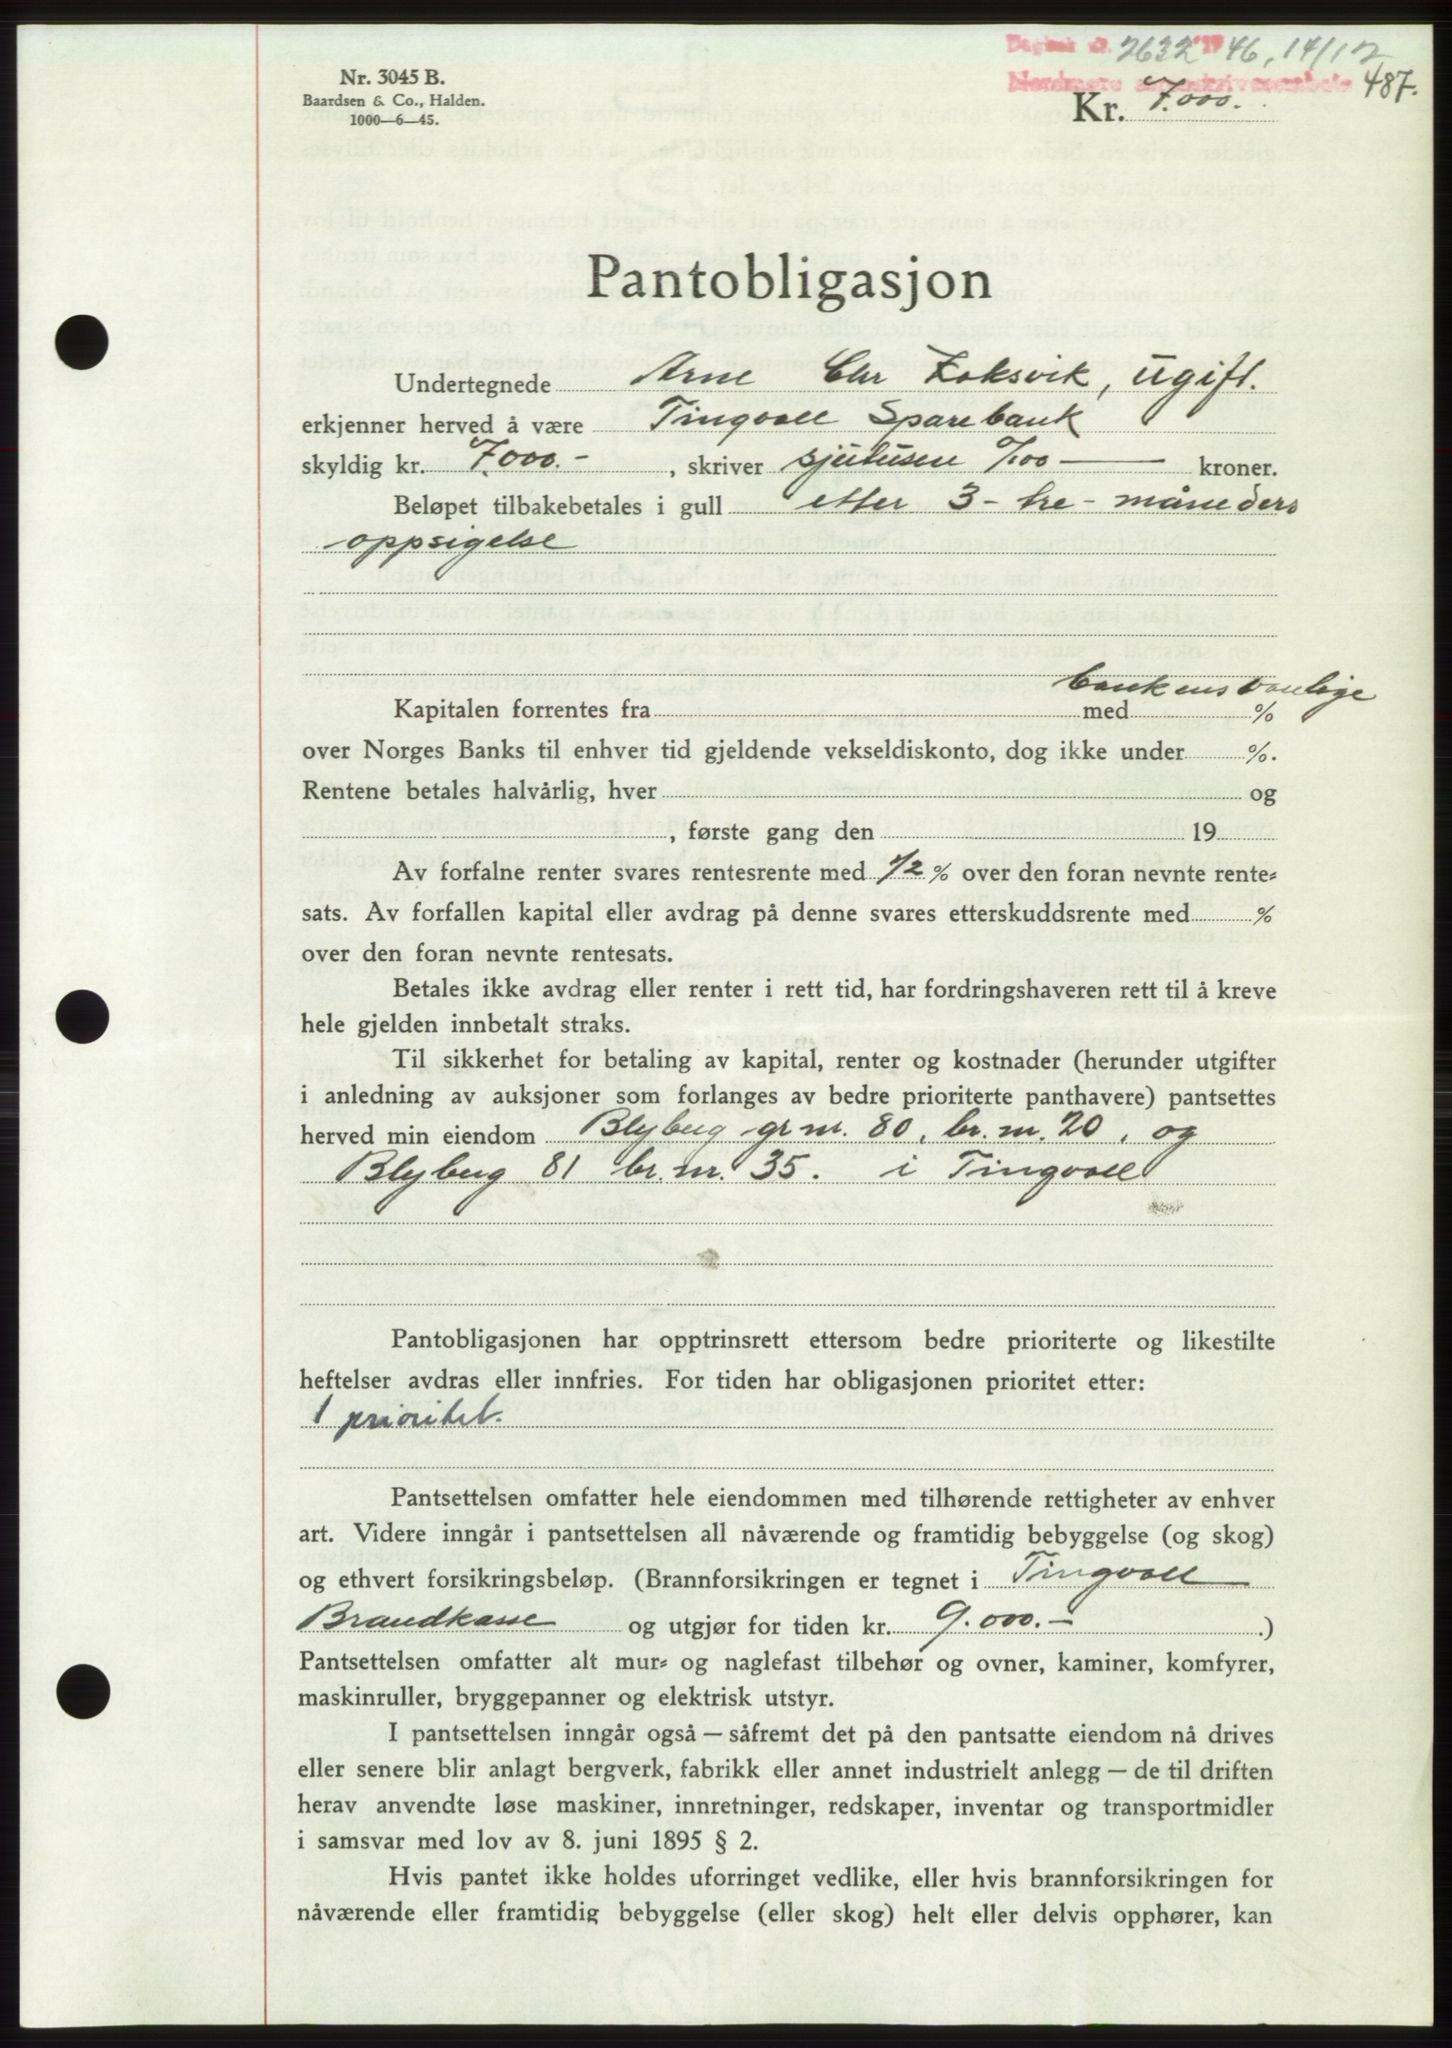 Dagbok nr. 2632 19 46, 14/12
Nordmøre sorenskriverembete 487.
Nr. 3045 B.
Baardsen & Co., Halden.
1000—6—45.
Kr. 7.000.
Pantobligasjon
Undertegnede Arne Chr Zoksvik, ugift.
erkjenner herved å være Tingvoll Sparebank
skyldig kr. 7.000.-, skriver sjutusen °/00 — kroner.
Beløpet tilbakebetales i gull etter 3 - tre - måneders
oppsigelse
bankens vanlige
Kapitalen forrentes fra med %
over Norges Banks til enhver tid gjeldende vekseldiskonto, dog ikke under %.
Rentene betales halvårlig, hver og
, første gang den 19
Av forfalne renter svares rentesrente med 1/2 % over den foran nevnte rente-
sats. Av forfallen kapital eller avdrag på denne svares etterskuddsrente med %
over den foran nevnte rentesats.
Betales ikke avdrag eller renter i rett tid, har fordringshaveren rett til å kreve
hele gjelden innbetalt straks.
Til sikkerhet for betaling av kapital, renter og kostnader (herunder utgifter
i anledning av auksjoner som forlanges av bedre prioriterte panthavere) pantsettes
herved min eiendom Blybug gr nr. 80, br. nr. 20, og
Blybug 81 br. nr. 35. i Tingvoll
Pantobligasjonen har opptrinsrett ettersom bedre prioriterte og likestilte
heftelser avdras eller innfries. For tiden har obligasjonen prioritet etter:
1 prioritet.
Pantsettelsen omfatter hele eiendommen med tilhørende rettigheter av enhver
art. Videre inngår i pantsettelsen all nåværende og framtidig bebyggelse (og skog)
og ethvert forsikringsbeløp. (Brannforsikringen er tegnet i Tingvoll
Brandkasse og utgjør for tiden kr. 9.000.- .)
Pantsettelsen omfatter alt mur- og naglefast tilbehør og ovner, kaminer, komfyrer,
maskinruller, bryggepanner og elektrisk utstyr.
I pantsettelsen inngår også — såfremt det på den pantsatte eiendom nå drives
eller senere blir anlagt bergverk, fabrikk eller annet industrielt anlegg — de til driften
herav anvendte løse maskiner, innretninger, redskaper, inventar og transportmidler
i samsvar med lov av 8. juni 1895 § 2.
Hvis pantet ikke holdes uforringet vedlike, eller hvis brannforsikringen for
nåværende eller framtidig bebyggelse (eller skog) helt eller delvis opphører, kan